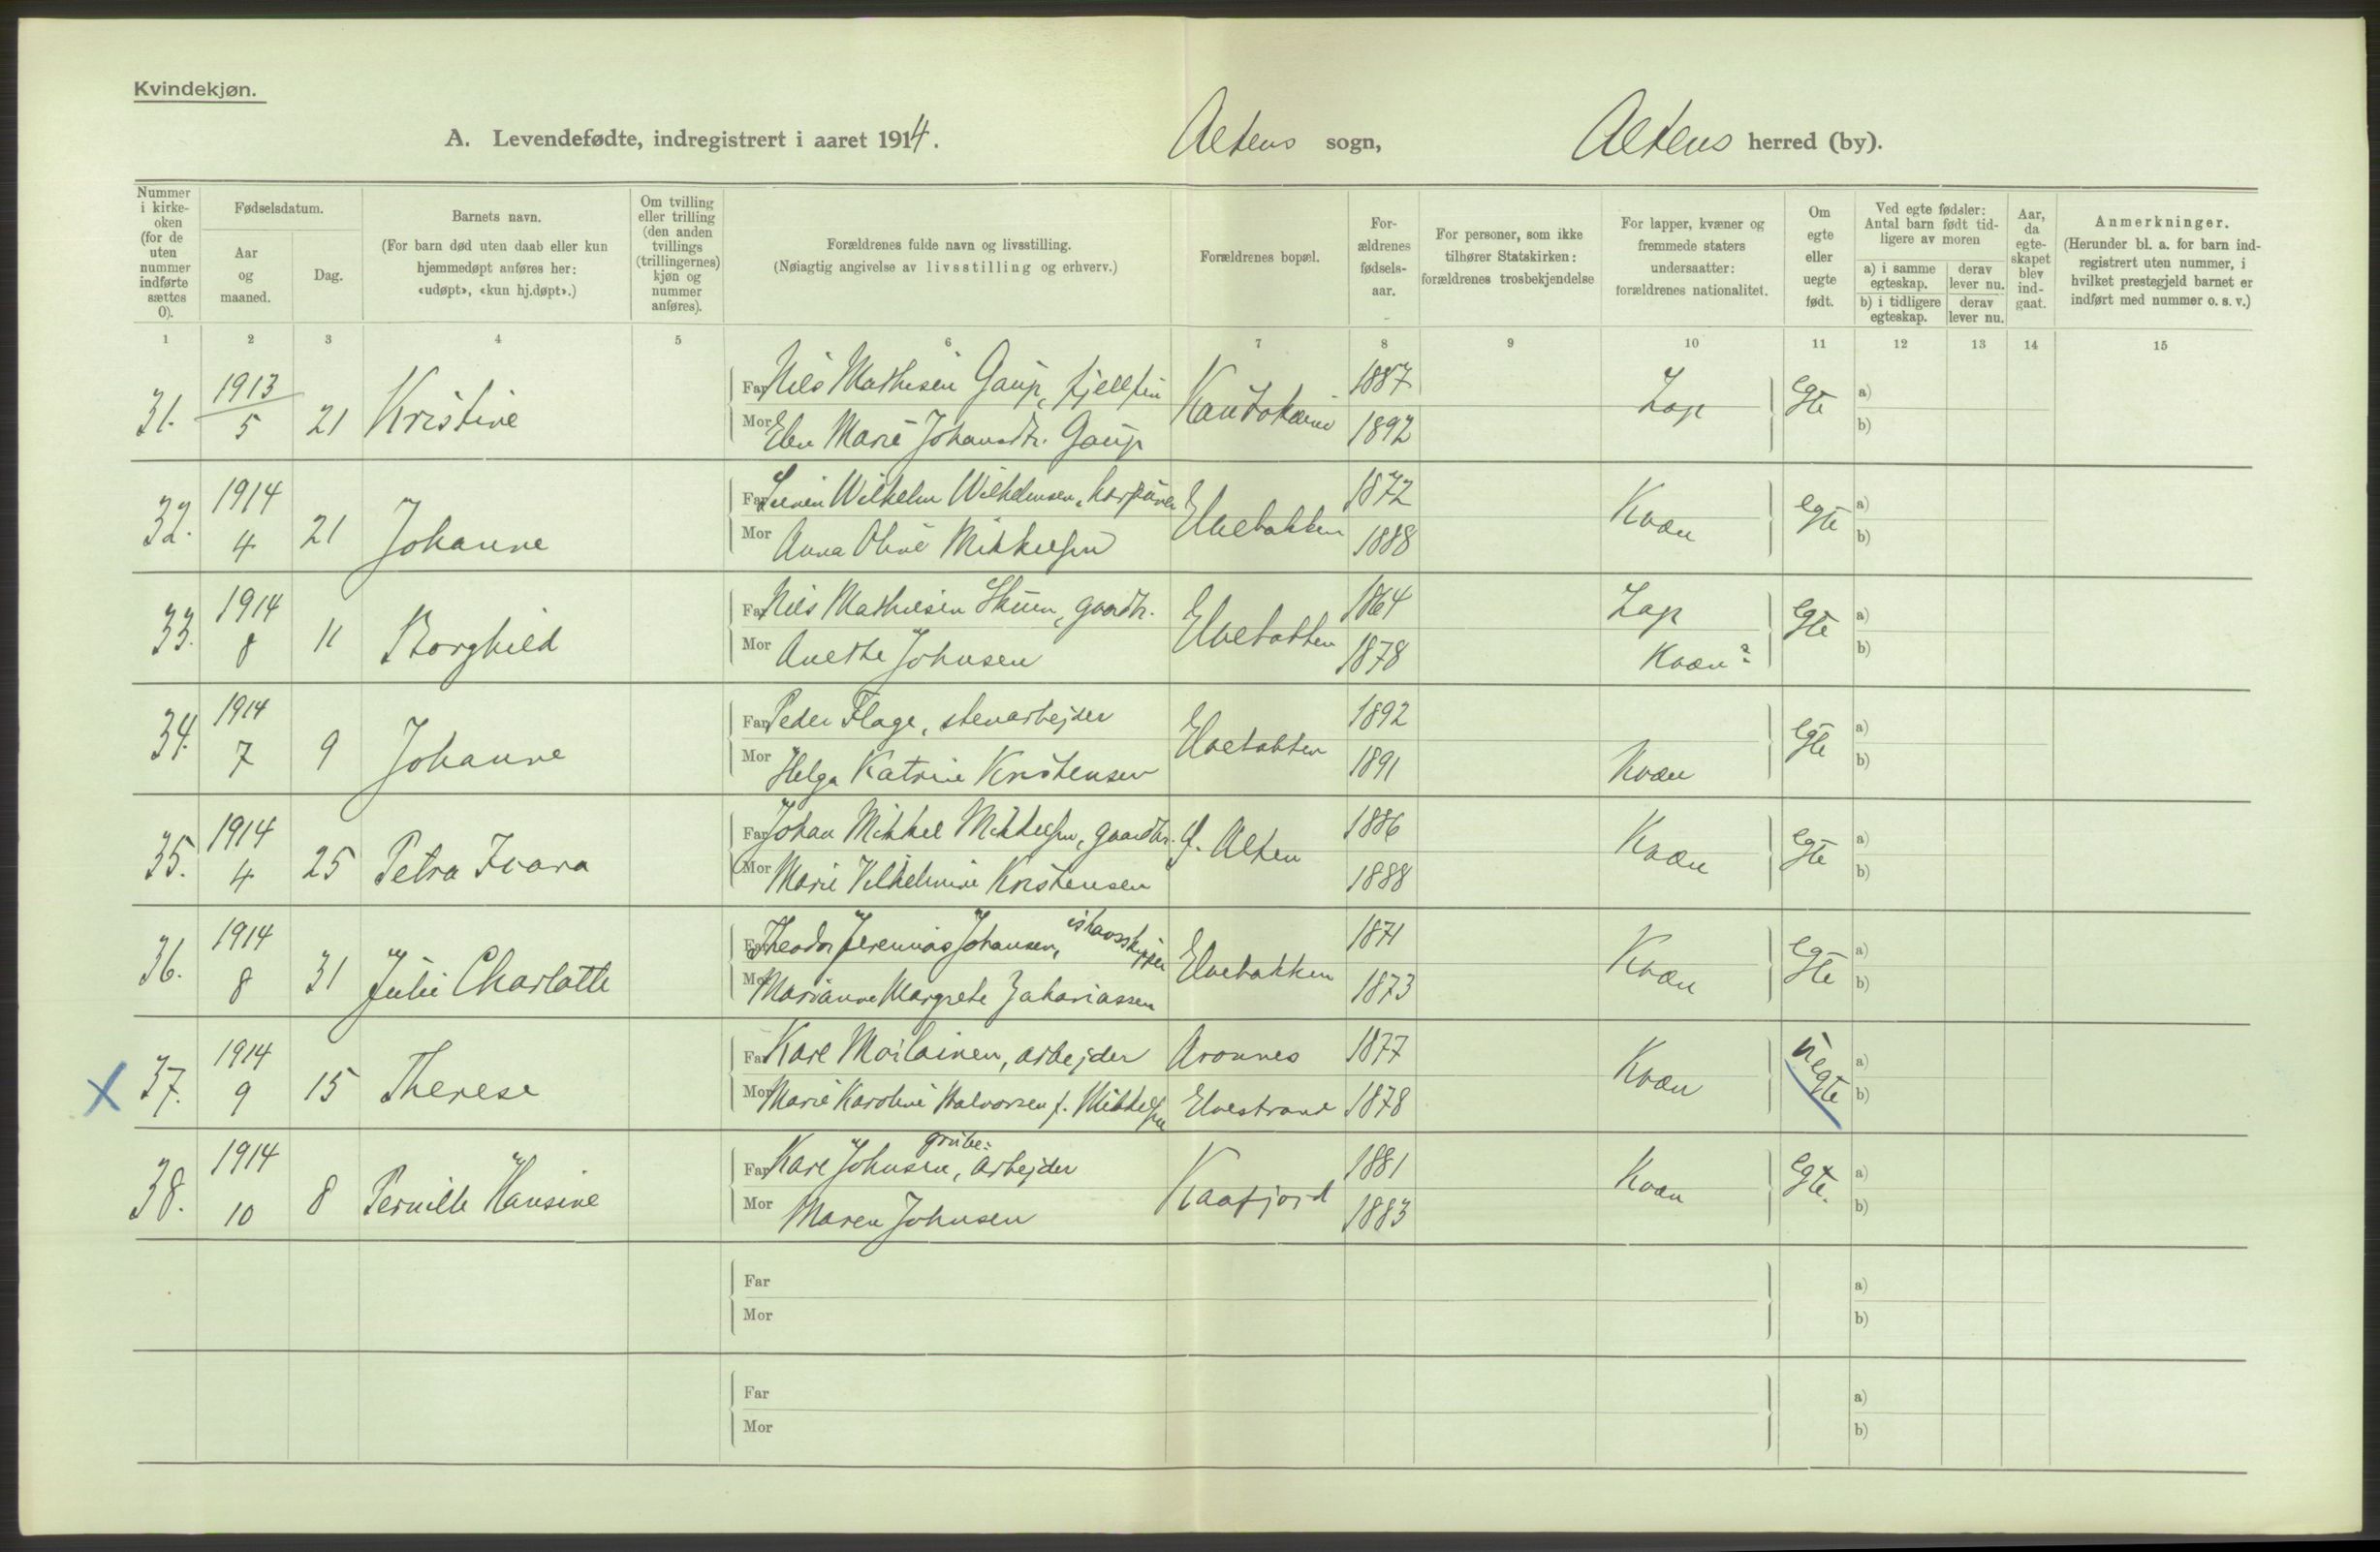 Kvindekjøn.
A. Levendefødte, indregistrert i aaret 1914. Altens sogn, Altens herred (by).
Nummer i kirke-oken (for de uten nummer indførte sættes 0).
Fødselsdatum.
Aar og maaned.
Dag.
Barnets navn.
(For barn død uten daab eller kun hjemmedøpt anføres her: «udøpt», «kun hj.døpt».)
Om tvilling eller trilling (den anden tvillings (trillingernes) kjøn og nummer anføres).
Forældrenes fulde navn og livsstilling.
(Nøiagtig angivelse av livsstilling og erhverv.)
Forældrenes bopæl.
For-ældrenes fødsels-aar.
For personer, som ikke tilhører Statskirken: forældrenes trosbekjendelse
For lapper, kvæner og fremmede staters undersaatter: forældrenes nationalitet.
Om egte eller uegte født.
Ved egte fødsler: Antal barn født tid-ligere av moren
a) i samme egteskap. derav lever nu.
b) i tidligere egteskap. derav lever nu.
Aar, da egte-skapet blev ind-gaat.
Anmerkninger.
(Herunder bl. a. for barn ind-registrert uten nummer, i hvilket prestegjeld barnet er indført med nummer o. s. v.)
1 2 3 4 5 6 7 8 9 10 11 12 13 14 15
31. 1913 5 21 Kristine
Far Nils Mathisen Gaup, fjellfin Kautokeino 1887 Lap egte a)
Mor Elen Marie Johansdtr. Gaup 1892 b)
32. 1914 4 21 Johanne
Far Wilhelm Wilhelmsen, Elvebakken 1872 Kvæn egte a)
Mor Anna Oline Mikkelsen 1888 b)
33. 1914 8 11 Borghild
Far Nils Mathisen Skum, gaardbr. Elvebakken 1864 Lap egte a)
Mor Anethe Johnsen 1878 Kvæn? b)
34. 1914 7 9 Johanne
Far Peder Flage, stenarbejder Elvebakken 1892 egte a)
Mor Helga Katrine Kristensen 1891 Kvæn b)
35. 1914 4 25 Petra Ivara
Far Johan Mikkel Mikkelsen, gaardbr. Ø. Alten 1886 Kvæn egte a)
Mor Marie Vilhelmine Kristensen 1888 b)
36. 1914 8 31 Julie Charlotte
Far Theodor Jeremias Johansen, ishavsskipper Elvebakken 1871 Kvæn egte a)
Mor Marianne Margrete Zakariassen 1873 b)
X 37. 1914 9 15 Therese
Far Karl Moilainen, arbejder Aronnes 1877 Kvæn uegte a)
Mor Marie Karoline Halvorsen f. Mikkelsen Elvestrand 1878 b)
38. 1914 10 8 Pernille Hansine
Far Karl Johnsen, grube-arbejder Kaafjord 1881 Kvæn egte. a)
Mor Maren Johnsen 1883 b)
Far a)
Mor b)
Far a)
Mor b)